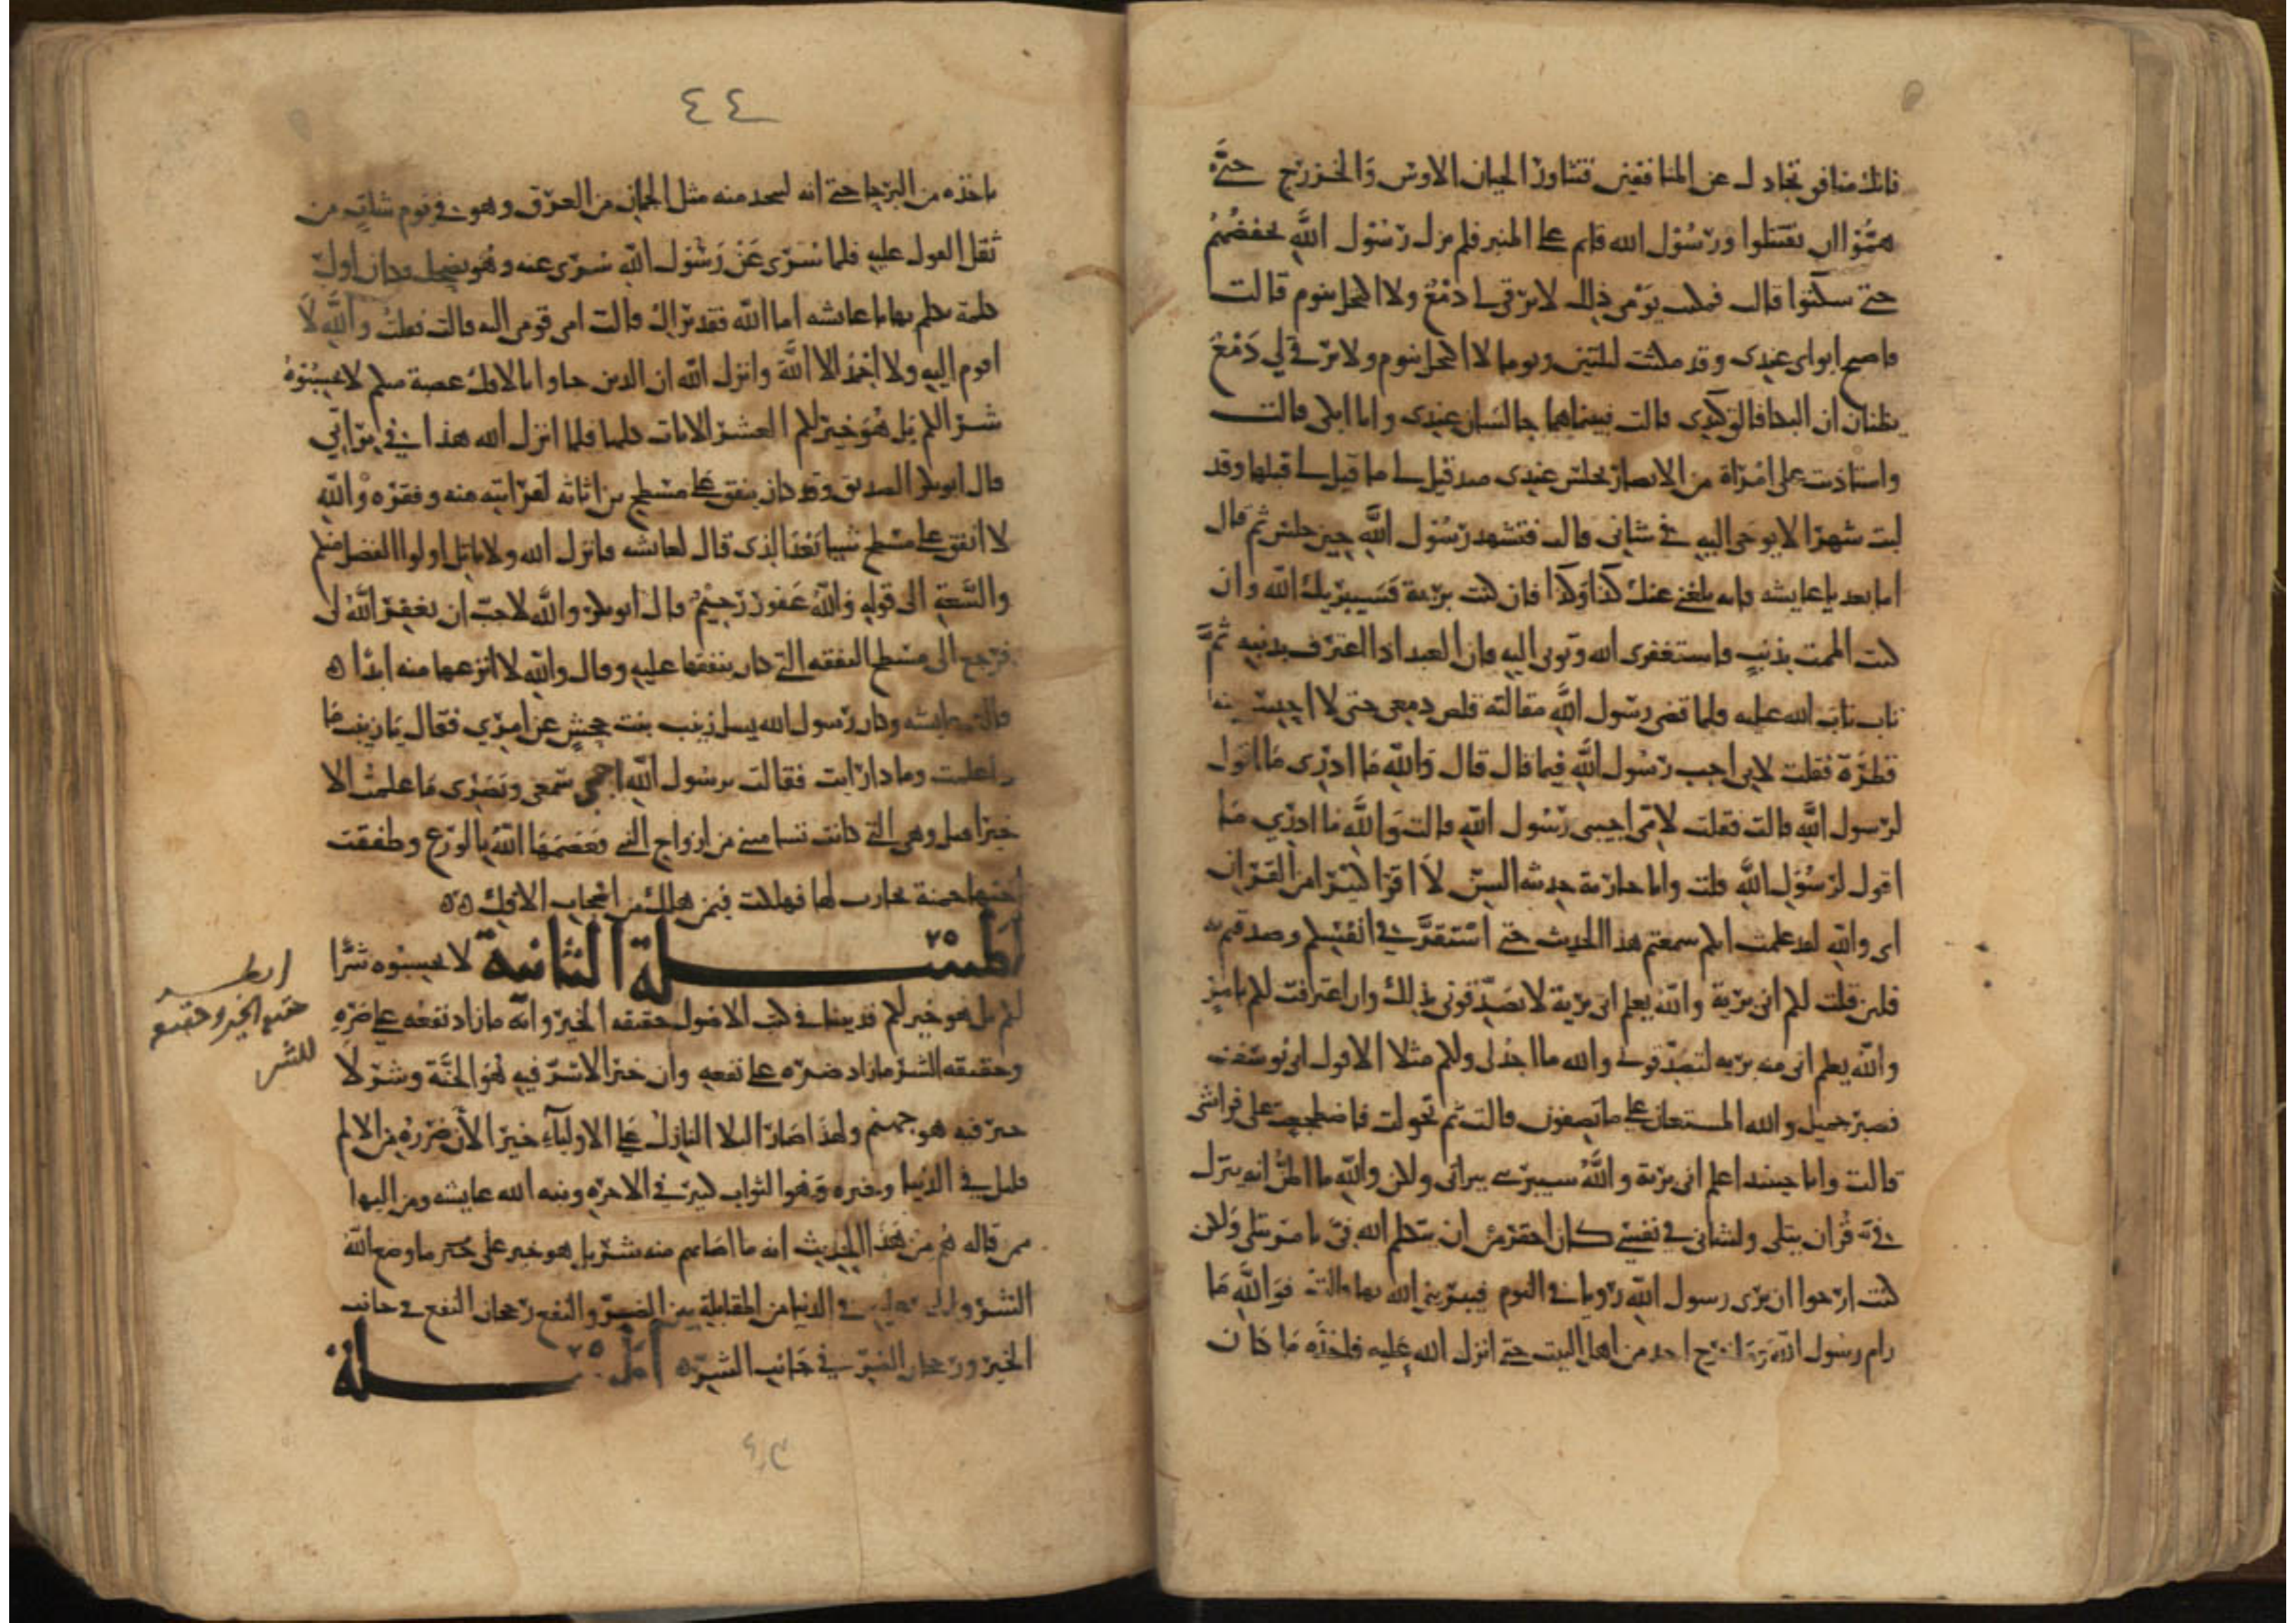 فانك منافق تجادل عن المنافقين فتثاور الحيان الاوس والخزرج حتى
همّوا ان يقتتلوا ورسول الله قايم على المنبر فلم يزل رسول الله يخفضهم
حتى سكتوا قال فمكثت يومى ذلك لا يرقى لى دمع ولا اكتحل بنوم قالت
فاصبح ابواى عندى وقد مكثت ليلتين ويوما لا اكتحل بنوم ولا يرقى لي دمع
يظنان ان البكا فالق كبدى قالت فبينما هما جالسان عندى وانا ابكى قالت
واستاذنت على امراة من الانصار تجلس عندى منذ قيل لى ما قيل لى قبلها وقد
لبث شهرا لا يوحى اليه في شانى قالت فتشهد رسول الله حين جلس ثم قال
اما بعد يا عايشه فانه بلغنى عنك كذا وكذا فان كنت برية فسيبريك الله وان
كنت الممت بذنب فاستغفرى الله وتوبى اليه فان العبد اذا اعترف بذنبه ثم
تاب تاب الله عليه فلما قضى رسول الله مقالته قلص دمعى حتى لا احس منه
قطرة فقلت لابى اجب رسول الله فيما قال قال والله ما ادرى ما اقول
لرسول الله قالت فقلت لامى اجيبى رسول الله قالت والله ما ادري ما
اقول لرسول الله قلت وانا جارية حديثه السن لا اقرا كثيرا من القران
اى والله لقد علمت انكم سمعتم هذا الحديث حتى استقر في انفسكم وصدقتم به
فلين قلت لكم انى برية والله يعلم انى برية لا تصدقونى بذلك وان اعترفت لكم بامر
والله يعلم انى منه بريه لتصدقونى والله ما اجد لى ولكم مثلا الا قول ابى يوسف
فصبر جميل والله المستعان على ما تصفون قالت ثم تحولت فاضطجعت على فراشى
قالت وانا حينيذ اعلم انى برية والله سيبرى ببراتى ولكن والله ما اظن انه ينزل
فيّ قران يتلى ولشانى في نفسى كان احقر من ان يتكلم الله فيّ بامر يتلى ولكن
كنت ارجوا ان يرى رسول الله رويا في النوم فيبرينى الله بها قالت فوالله ما
رام رسول الله ولا خرج احد من اهل البيت حتى انزل الله عليه فاخذه ما كان
٤٤
ياخذه من البرحا حتى انه ليتحدر منه مثل الجمان من العرق وهو في يوم شات من
ثقل القول عليه فلما سرى عن رسول الله سرى عنه وهو يضحك وكان اول
كلمة تكلم بها يا عايشه اما الله فقد براك قالت امى قومى اليه قالت فقلت والله لا
اقوم اليه ولا احمد الا الله وانزل الله ان الذين جاوا بالافك عصبة منكم لا تحسبوه
شرا لكم بل هو خير لكم العشر الايات كلها فلما انزل الله هذا في براتي
قال ابو بكر الصديق وقد كان ينفق على مسطح بن اثاثه لقرابته منه وفقره والله
لا انفق على مسطح شيا بعد الذى قال لعايشه فانزل الله ولا ياتل اولوا الفضل منكم
والسعة الى قوله والله غفور رحيم قال ابو بكر والله لاحب ان يغفر الله لى
فرجع الى مسطح النفقه التى كان ينفقها عليه وقال والله لا انزعها منه ابدا
قالت عايشه وكان رسول الله يسل زينب بنت جحش عن امري فقال يا زينب ما
ذا علمت وماذا رايت فقالت يرسول الله احمي سمعى وبصرى ما علمت الا
خيرا وهى التى كانت تسامينى من ازواج النبى فعصمها الله بالورع وطفقت
اختها حمنة تحارب لها فهلكت فيمن هلك من اصحاب الافك
المسلة الثانية لا تحسبوه شرا
لكم بل هو خير لكم قد بينا في كتب الاصول حقيقه الخير وانه ما زاد نفعه على ضره
وحقيقه الشر ما زاد ضره على نفعه وان خيرا لا شر فيه هو الجنة وشر لا
خير فيه هو جهنم ولهذا صار البلا النازل على الاوليآء خيرا لان ضرره من الالم
قليل في الدنيا وخيره وهو الثواب كثير في الاخره ونبه الله عايشه ومن اليها
ممن قاله هم من هذا الحديث انه ما اصابهم منه شر بل هو خير على ما وضع الله
الشر والخير في الدنيا من المقابلة بين الضر والنفع رجحان النفع في جانب
الخير ورجحان الضر في جانب الشر المسلة
حقيقة الخير وحقيقة
للشر